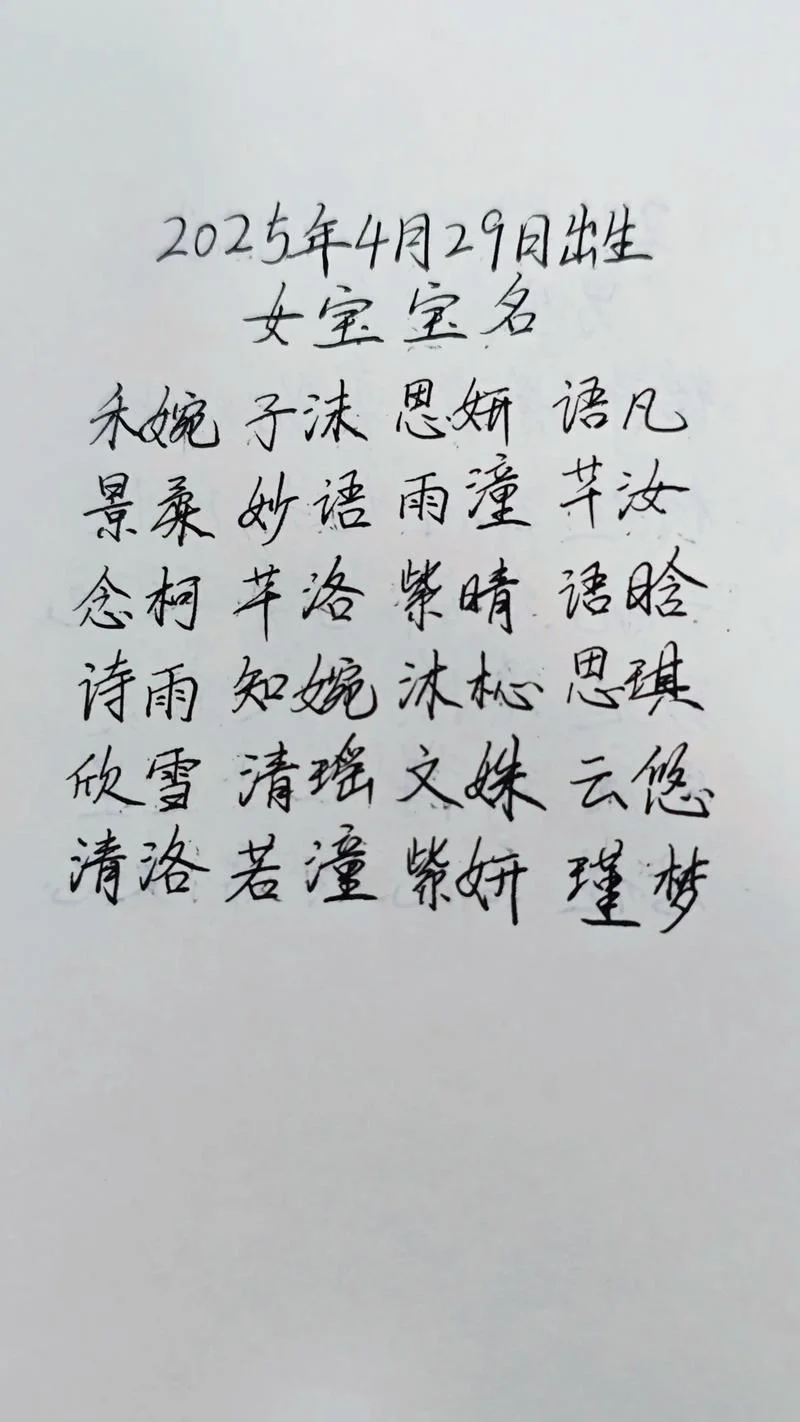 2025年4月29日出生
女宝宝名
禾婉 子沫 思妍 语凡
景桑 妙语 雨潼 芊汝
念柯 芊洛 紫晴 语晗
诗雨 知婉 沐杺 思琪
欣雪 清瑶 文姝 云悠
清洛 若潼 紫妍 瑾梦